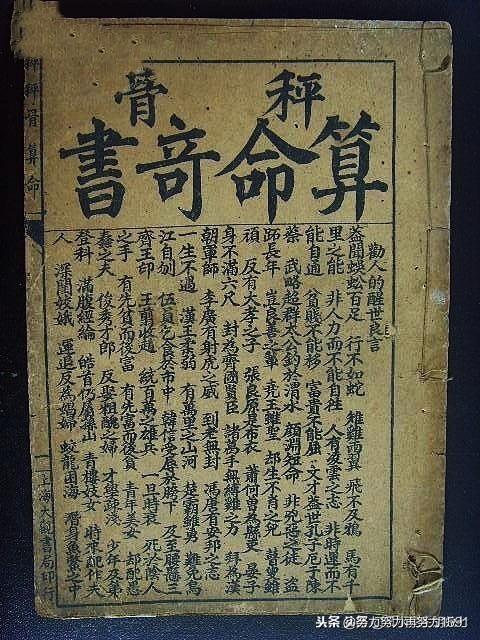 秤骨
算命奇書
勸人的醒世良言
蓋聞蜈蚣百足 行不如蛇 雄雞兩翼 飛不及鴉 馬有千
里之能 非人力而不能自往 人有凌雲之志 非時運而不
能自通 貧賤不能移 富貴不能屈 文才蓋世孔子厄于陳
蔡 武略超群太公釣於渭水 顏淵短命 非兇惡之徒 盜
跖長年 豈良善之輩 堯王雖聖 却生不肖之兒 瞽叟雖
頑 反有大孝之子 張良原是布衣 蕭何曾為縣吏 晏子
身不滿六尺 封為齊國賢臣 諸葛手無縛雞之力 拜為漢
朝軍師 李廣有射虎之威 到老無封 馮唐有安邦之志
一生不遇 漢王柔弱 有萬里之山河 楚霸雖勇 難免烏
江自刎 伍員乞食於市中 韓信受辱於胯下 及至腰懸三
齊王印 王翦收趙 統百萬之雄兵 一旦時衰 死於陰人
之手 有先貧而後富 有先富而後貧 青年美女 却配愚
蠢之夫 俊秀才郎 反娶粗醜之婦 才學疎淺 少年及第
登科 滿腹經綸 皓首仍居深山 青樓妓女 時來配作夫
人 深閨娥 運退反為娼婦 蛟龍困海 潛身魚鱉之中
秤骨算命
上海大觀書局印行
头条 @努力努力再努力1591